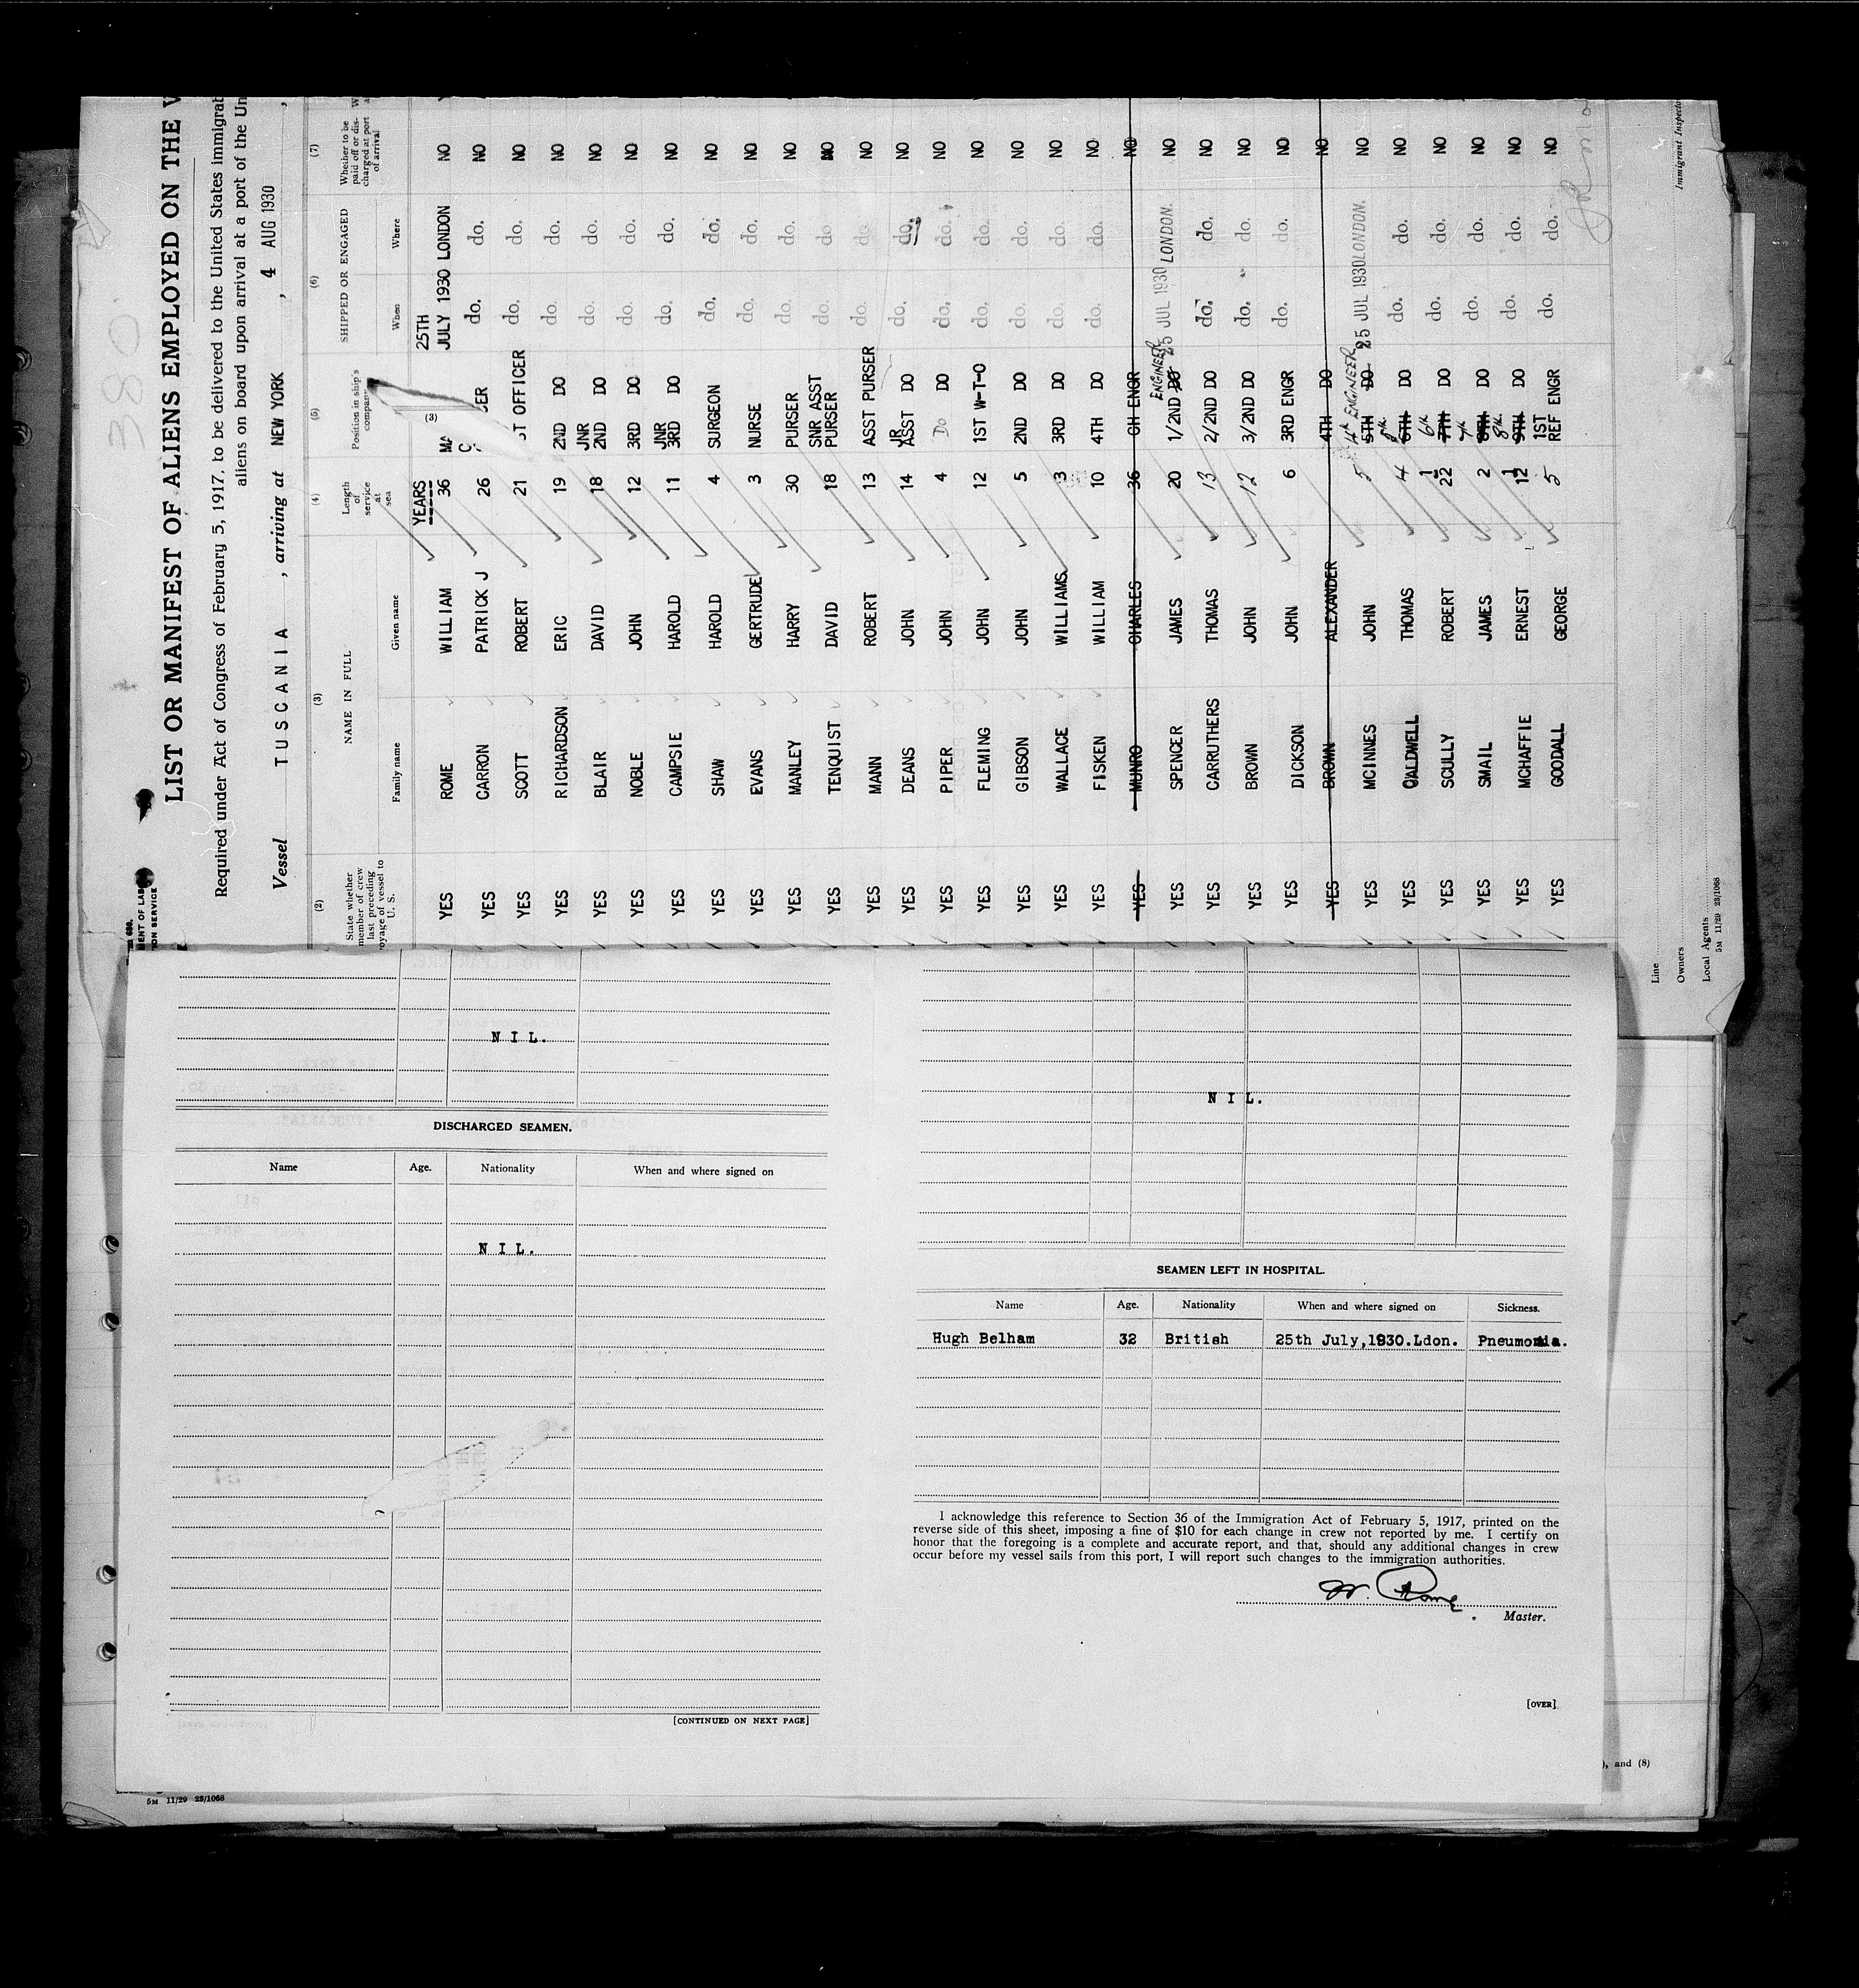 380.
LIST OR MANIFEST OF ALIENS EMPLOYED ON THE V
Required under Act of Congress of February 5, 1917, to be delivered to the United States immigrat
aliens on board upon arrival at a port of the Un
Vessel TUSCANIA , arriving at NEW YORK , 4 AUG 1930 ,
(2) (3) (4) (5) (6) (7)
State whether member of crew last preceding voyage of vessel to U. S.
NAME IN FULL
Family name Given name
Length of service at sea
Position in ship's company
SHIPPED OR ENGAGED
When Where
Whether to be paid off or discharged at port of arrival
YEARS 25TH
YES ROME WILLIAM 36 MA JULY 1930 LONDON NO
YES CARRON PATRICK J 26 do. do. NO
YES SCOTT ROBERT 21 ST OFFICER do. do. NO
YES RICHARDSON ERIC 19 2ND DO do. do. NO
YES BLAIR DAVID 18 JNR 2ND DO do. do. NO
YES NOBLE JOHN 12 3RD DO do. do. NO
YES CAMPSIE HAROLD 11 JNR 3RD DO do. do. NO
YES SHAW HAROLD 4 SURGEON do. do. NO
YES EVANS GERTRUDE 3 NURSE do. do. NO
YES MANLEY HARRY 30 PURSER do. do. NO
YES TENQUIST DAVID 18 SNR ASST PURSER do. do. NO
YES MANN ROBERT 13 ASST PURSER do. do. NO
YES DEANS JOHN 14 JR ASST DO do. do. NO
YES PIPER JOHN 4 Do DO do. do. NO
YES FLEMING JOHN 12 1ST W-T-O do. do. NO
YES GIBSON JOHN 5 2ND DO do. do. NO
YES WALLACE WILLIAMS 3 3RD DO do. do. NO
YES FISKEN WILLIAM 10 4TH DO do. do. NO
YES MUNRO CHARLES 36 CH ENGR NO
YES SPENCER JAMES 20 1/2ND DO ENGINEER 25 JUL 1930 LONDON. NO
YES CARRUTHERS THOMAS 13 2/2ND DO do. do. NO
YES BROWN JOHN 12 3/2ND DO do. do. NO
YES DICKSON JOHN 6 3RD ENGR do. do. NO
YES BROWN ALEXANDER 4TH DO NO
YES MCINNES JOHN 5 5TH DO 4th ENGINEER 25 JUL 1930 LONDON. NO
YES CALDWELL THOMAS 4 6TH DO do. do. NO
YES SCULLY ROBERT 1 22 7TH 6th DO do. do. NO
YES SMAIL JAMES 2 8TH 7th DO do. do. NO
YES MCHAFFIE ERNEST 1 12 9TH 8th DO do. do. NO
YES GOODALL GEORGE 5 1ST REF ENGR do. do. NO
Line
Owners
Local Agents
5M 11/29 23/1068
Immigrant Inspector
NIL.
DISCHARGED SEAMEN.
Name Age. Nationality When and where signed on
NIL.
[CONTINUED ON NEXT PAGE]
5M 11/29 23/1068
NIL.
SEAMEN LEFT IN HOSPITAL.
Name Age. Nationality When and where signed on Sickness.
Hugh Belham 32 British 25th July,1930.Ldon. Pneumonia.
I acknowledge this reference to Section 36 of the Immigration Act of February 5, 1917, printed on the
reverse side of this sheet, imposing a fine of $10 for each change in crew not reported by me. I certify on
honor that the foregoing is a complete and accurate report, and that, should any additional changes in crew
occur before my vessel sails from this port, I will report such changes to the immigration authorities.
W. Rome
Master.
[OVER]
), and (8)